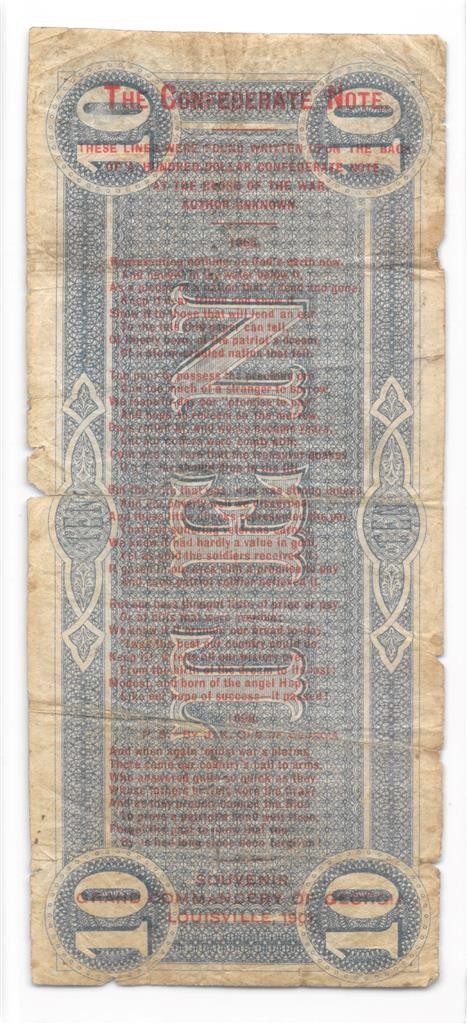 THE CONFEDERATE NOTE
THESE LINES WERE FOUND WRITTEN UPON THE BACK
OF A HUNDRED-DOLLAR CONFEDERATE NOTE,
AT THE CLOSE OF THE WAR
AUTHOR UNKNOWN.
1865.
Representing nothing on God's earth now,
And naught in the water below it,
As a pledge of a nation that's dead and gone
Keep it dear friend and show it.
Show it to those that will lend an ear
To the tale this paper can tell,
Of liberty born, of the patriot's dream,
Of a storm-cradled nation that fell.
Too poor to possess the precious ore
too much of a stranger to borrow,
We issued to-day our "promise to pay"
And hope to redeem on the morrow.
Days rolled by, and weeks became years,
But our coffers were empty still;
Coin was so rare that the treasury quakes
If a should drop in the till.
But the faith that was was strong indeed
And our poverty well
And these little checks represented the pay
That our suffering veterans
We knew it had hardly a value in gold,
Yet as gold the soldiers received it;
It gazed in our eyes with a promise to pay
And each patriot soldier believed it.
But our boys thought little of price or pay,
Or of bills that were overdue;
We knew if it brought our bread to-day,
'Twas the best our country could do.
Keep it! it tells all our history over,
From the birth of the dream to its last;
Modest, and born of the angel Hope,
Like our hope of success—it passed!
1898.
P. S.—By OF GEORGIA
And when again 'midst war's alarms,
There came our country's call to arms,
Who answered quite so quick as they
Whose fathers brothers wore the Gray?
And as they proudly donned the Blue
To prove a patriot's blood well risen,
Forget the past to know that you
had long since been forgiven!
SOUVENIR
GRAND COMMANDERY OF GEORGIA
LOUISVILLE, 1901
10
10
10
10
TEN
TEN